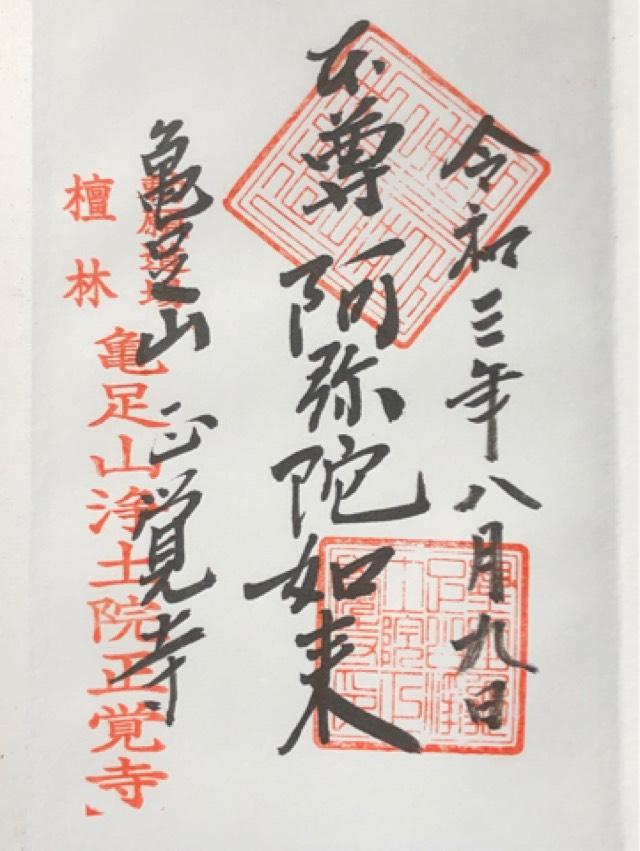 令和三年八月九日
本尊 阿弥陀如来
亀足山 正覚寺
檀林
亀足山浄土院正覚寺